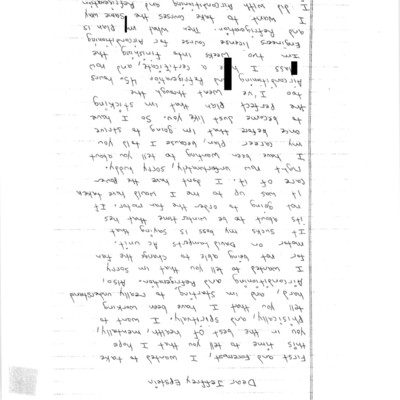 Dear Jeffrey Epstein
First and foremost, I wanted to take
this time to tell you that I hope
you in the best of health, mentally,
Physically, and Spiritely. I want to
tell you that I have been working
hard, and im Starting to really understand
Airconditioning and Refrigeration. Also,
I wanted to tell you that im sorry
for not being able to change the fan
motor on David Ac unit.
It sucks my boss is saying that
its about to be winter time that hes
not going to order the fan motor. If
it was up to me I would have taken
care of it. I dont have the power
right now unfortunately, sorry buddy.
I have been wanting to tell you about
my career plan, because I told you
once before that im going to strive
to become just like you. So I have
the perfect plan that im sticking
too I've went through the
Airconditioning and Refrigeration 45 hours
I a certificate and now
Im two weeks into finishing the
Engineers license course for Airconditioning
and Refrigeration. Then what my plan is
I want to take courses the same way
I did with Airconditioning and Refrigeration